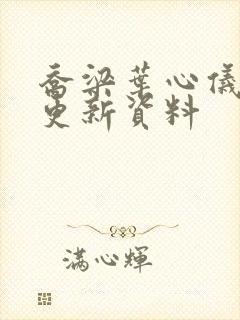 喬梁葉心儀
更新資料
滿心輝